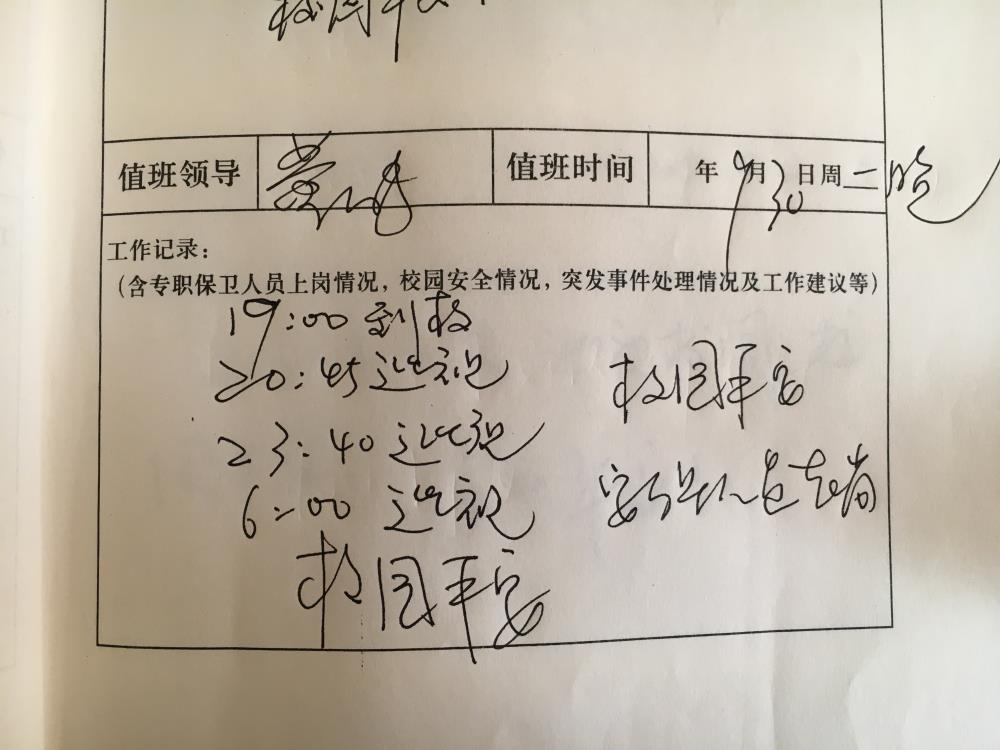 校园平安
值班领导 黄 值班时间 年9月30日周二晚
工作记录：
（含专职保卫人员上岗情况，校园安全情况，突发事件处理情况及工作建议等）
19:00 到校
20:45 巡视
校园平安
23:40 巡视
6:00 巡视
安保人员在岗
校园平安